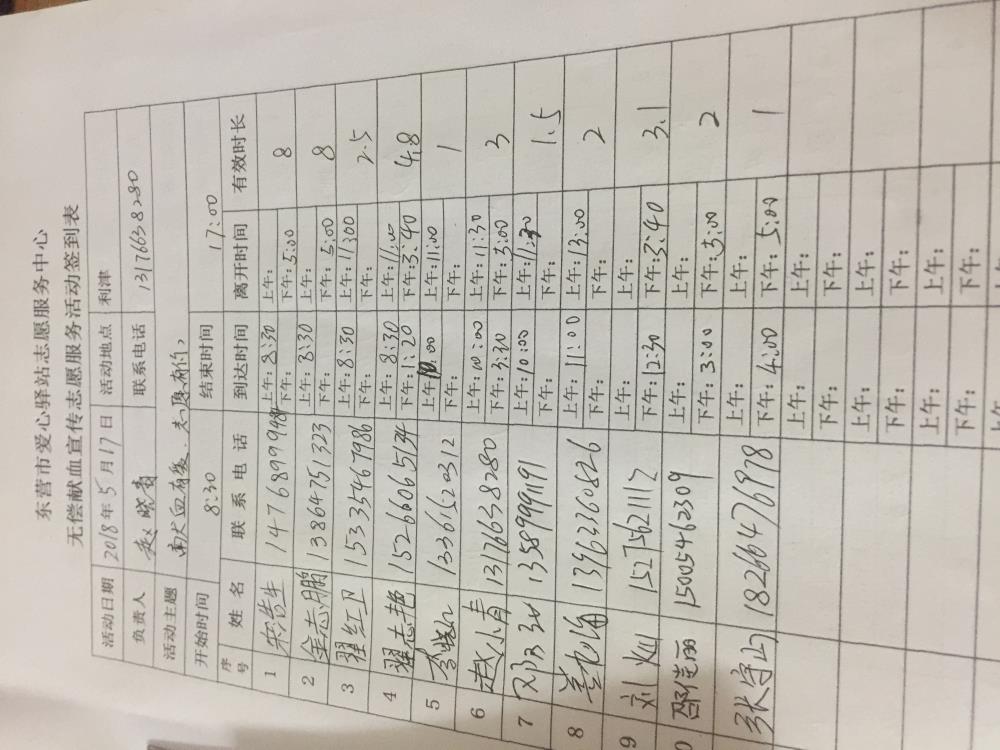 东营市爱心驿站志愿服务中心
无偿献血宣传志愿服务活动签到表
活动日期 2018年5月17日 活动地点 利津
负责人 赵晓青 联系电话 13176638280
活动主题 献血有爱，志愿有你。
开始时间 8:30 结束时间 17:00
序号 姓名 联系电话 到达时间 离开时间 有效时长
1 14768999484 上午:8:30 上午: 8
下午: 下午:5:00
2 金志鹏 13864751323 上午:8:30 上午: 8
下午: 下午:5:00
3 翟红卫 15335467986 上午:8:30 上午:11:00 2.5
下午: 下午:
4 翟志艳 15266065134 上午:8:30 上午:11:00 4.8
下午:1:20 下午:3:40
5 李 13361520312 上午:10:00 上午:11:00 1
下午: 下午:
6 赵小青 13176638280 上午:10:00 上午:11:30 3
下午:3:30 下午:5:00
7 13589991191 上午:10:00 上午:11:30 1.5
下午: 下午:
8 13963360826 上午:11:00 上午:13:00 2
下午: 下午:
9 刘 15275621117 上午: 上午: 3.1
下午:12:30 下午:3:40
0 邵佳丽 15005462309 上午: 上午: 2
下午:3:00 下午:5:00
张守山 18266476978 上午: 上午: 1
下午:4:00 下午:5:00
上午: 上午:
下午: 下午:
上午: 上午:
下午: 下午:
上午: 上午:
下午: 下午:
上午: